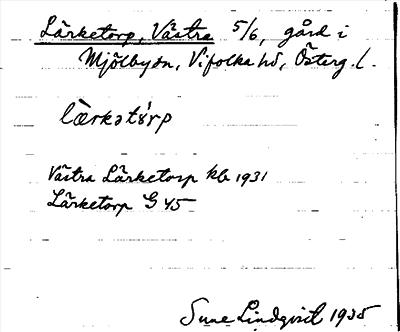 Lärketorp, Västra 5/6, gård i
Mjölbysn, Vifolka hd, Österg. l.
lä̀rkətórp
Västra Lärketorp kb 1931
Lärketorp G 45
Sune Lindqvist 1935